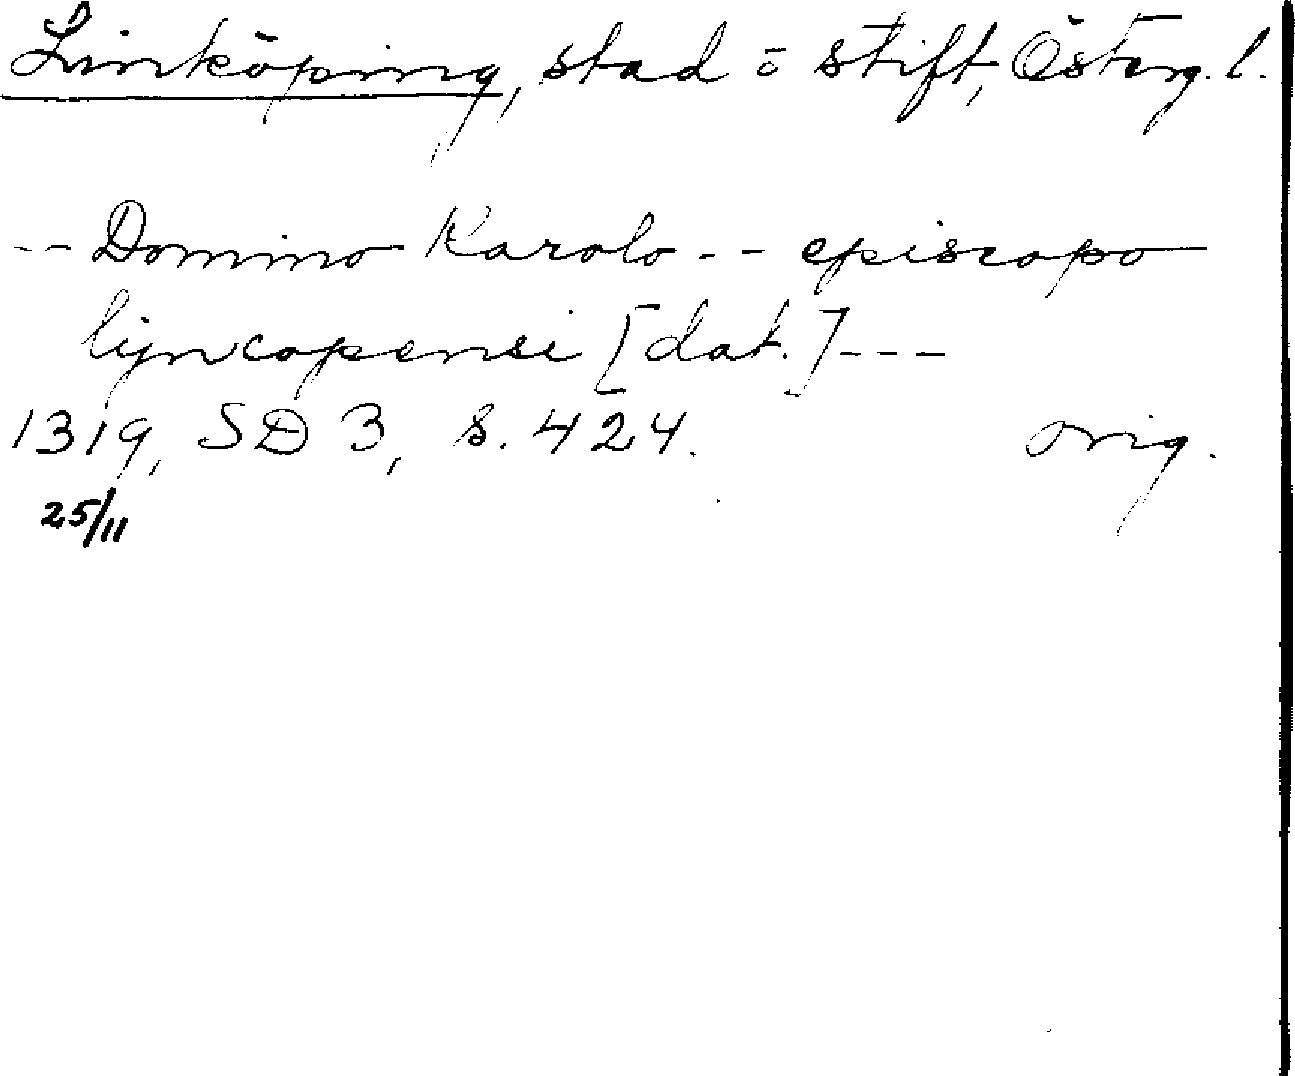 Linköping, stad o stift, Österg. l.
-- Domino Karolo -- episcopo
lijncopensi [dat.] ---
1319, SD 3, s. 424. orig.
25/11